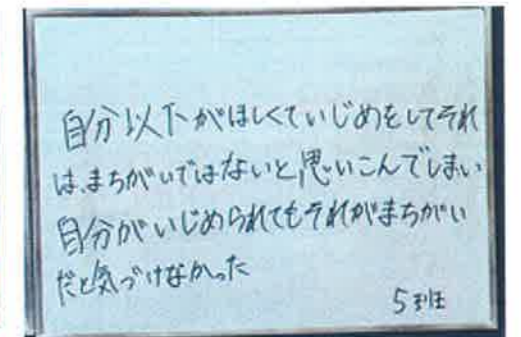 自分以下がほしくていじめをしてそれ
は、まちがいではないと思いこんでしまい
自分がいじめられてもそれがまちがい
だと気づけなかった
5班